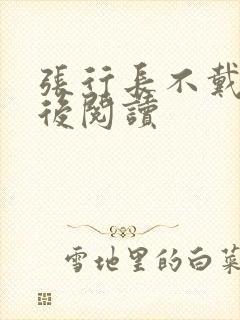 張行長不戴
後閱讀
雪地里的白菜